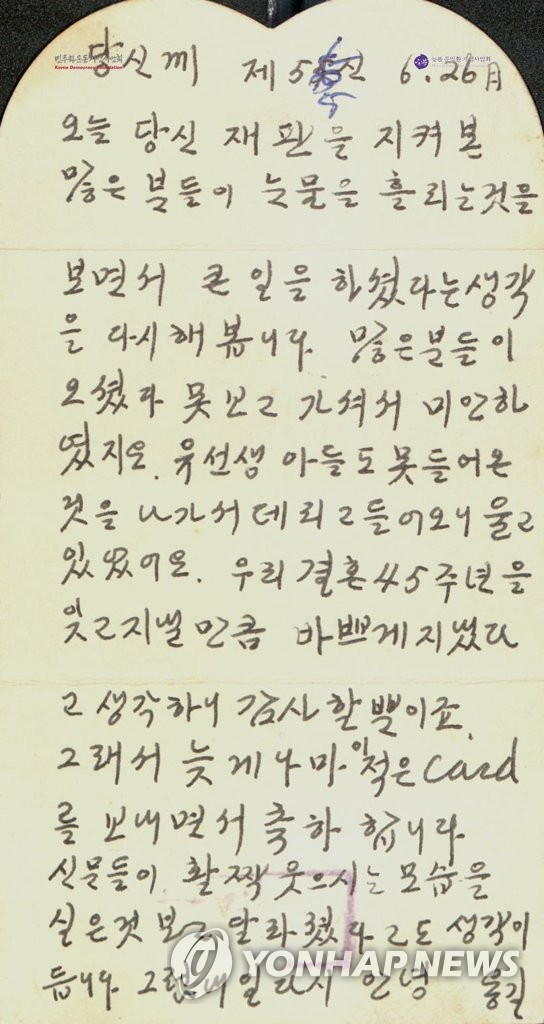 민주화운동기념사업회
Korea Democracy Foundation
늦봄 문익환 기념사업회
당신께 제5 신 6. 26 月
오늘 당신 재판을 지켜 본
많은 분들이 눈물을 흘리는것을
보면서 큰 일을 하셨다는생각
을 다시해 봅니다. 많은분들이
오셨다 못보고 가셔서 미안하
였지요. 유선생 아들도 못들어온
것을 나가서 데리고들어오니 울고
있었어요. 우리 결혼 45주년을
잊고지낼 만큼 바쁘게지냈다
고 생각하니 감사 할 뿐이죠.
그래서 늦게나마 이 적은 Card
를 보내면서 축하 합니다.
신문들이 활짝 웃으시는 모습을
실은것 보고 달라졌다고도 생각이
듭니다. 그럼 내일 다시 안녕 용길
YONHAP NEWS